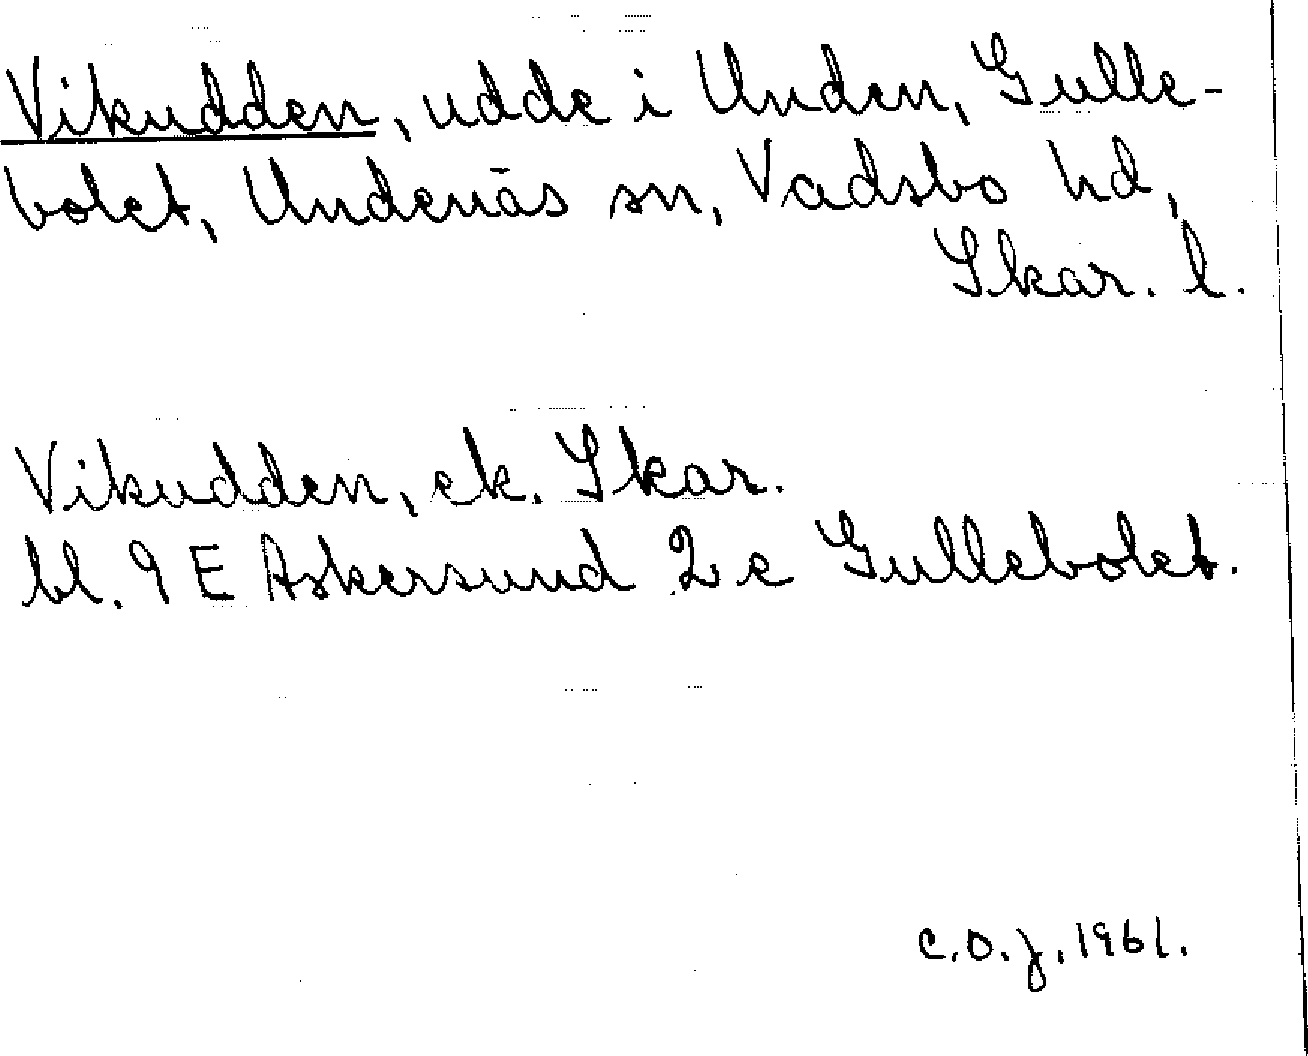 Vikudden, udde i Unden, Gulle-
bolet, Undenäs sn, Vadsbo hd,
Skar. l.
Vikudden, ek. Skar.
bl. 9 E Askersund 2 c Gullebolet.
C.O.J. 1961.